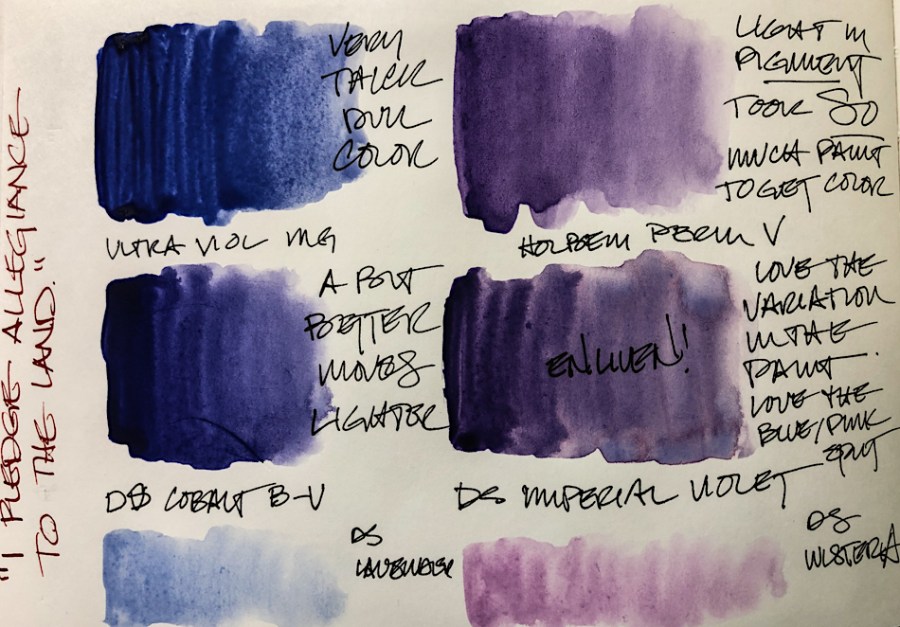 "I PLEDGE ALLEGIANCE
TO THE LAND."
VERY
THICK
DULL
COLOR
ULTRA VIOL MG
LIGHT IN
PIGMENT
TOOK SO
MUCH PAINT
TO GET COLOR
HOLBEIN PERM V
A BIT
BETTER
MOVES
LIGHTER
DS COBALT B-V
ENLIVEN!
LOVE THE
VARIATION
IN THE
PAINT.
LOVE THE
BLUE/PINK
SPLIT
DS IMPERIAL VIOLET
DS
LAVENDER
DS
WISTERIA